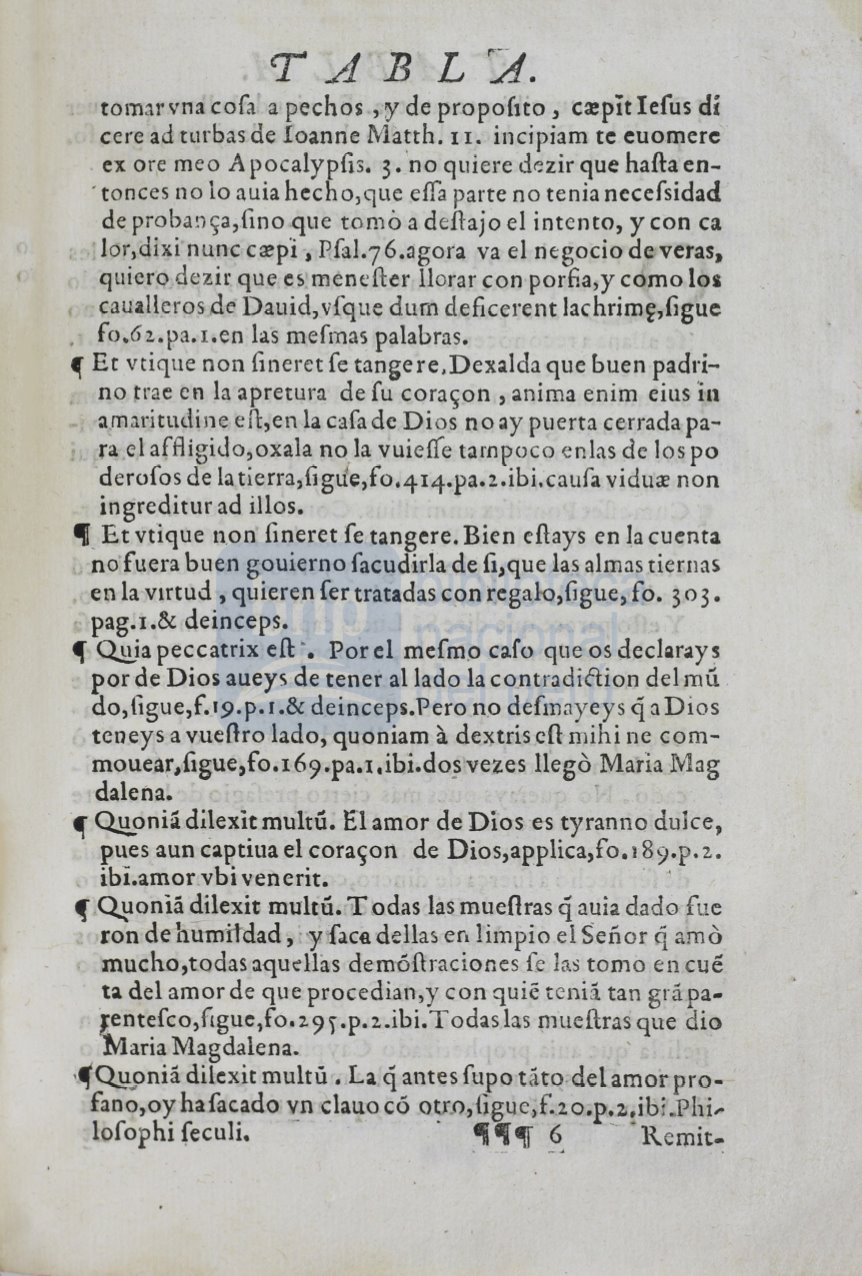 TABLA.
tomar vna coſa a pechos , y de propoſito , cæpit Ieſus di
cere ad turbas de Ioanne Matth. 11. incipiam te euomere
ex ore meo Apocalypſis. 3. no quiere dezir que haſta en-
tonces no lo auia hecho,que eſſa parte no tenia neceſsidad
de probança,ſino que tomò a deſtajo el intento, y con ca
lor,dixi nunc cæpi , Pſal.76.agora va el negocio de veras,
quiero dezir que es meneſter llorar con porfia,y como los
caualleros de Dauid,vſque dum deficerent lachrimę,ſigue
fo.62.pa.1.en las meſmas palabras.
¶ Et vtique non ſineret ſe tangere.Dexalda que buen padri-
no trae en la apretura de ſu coraçon , anima enim eius in
amaritudine eſt,en la caſa de Dios no ay puerta cerrada pa-
ra el affligido,oxala no la vuieſſe tampoco en las de los po
deroſos de la tierra,ſigue,fo.414.pa.2.ibi.cauſa viduæ non
ingreditur ad illos.
¶ Et vtique non ſineret ſe tangere. Bien eſtays en la cuenta
no fuera buen gouierno ſacudirla de ſi,que las almas tiernas
en la virtud , quieren ſer tratadas con regalo,ſigue, fo. 303.
pag.1.& deinceps.
¶ Quia peccatrix eſt . Por el meſmo caſo que os declarays
por de Dios aueys de tener al lado la contradiction del mũ
do,ſigue,f.19.p.1.& deinceps.Pero no deſmayeys q̃ a Dios
teneys a vueſtro lado, quoniam à dextris eſt mihi ne com-
mouear,ſigue,fo.169.pa.1.ibi.dos vezes llegò Maria Mag
dalena.
¶ Quoniã dilexit multũ. El amor de Dios es tyranno dulce,
pues aun captiua el coraçon de Dios,applica,fo.189.p.2.
ibi.amor vbi venerit.
¶ Quoniã dilexit multũ. Todas las mueſtras q̃ auia dado fue
ron de humildad , y ſaca dellas en limpio el Señor q̃ amò
mucho,todas aquellas demõſtraciones ſe las tomo en cuẽ
ta del amor de que procedian,y con quiẽ teniã tan grã pa-
renteſco,ſigue,fo.295.p.2.ibi.Todas las mueſtras que dio
Maria Magdalena.
¶ Quoniã dilexit multũ . La q̃ antes ſupo tãto del amor pro-
fano,oy ha ſacado vn clauo cõ otro,ſigue,f.20.p.2.ibi.Phi-
loſophi ſeculi.
¶¶¶ 6 Remit-